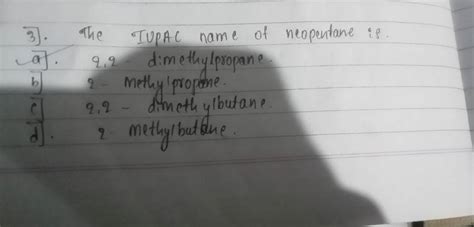 3]. The IUPAC name of neopentane is.
a]. 2,2 dimethylpropane.
b] 2- methylpropane.
c] 2,2 - dimethylbutane.
d]. 2 methylbutane.